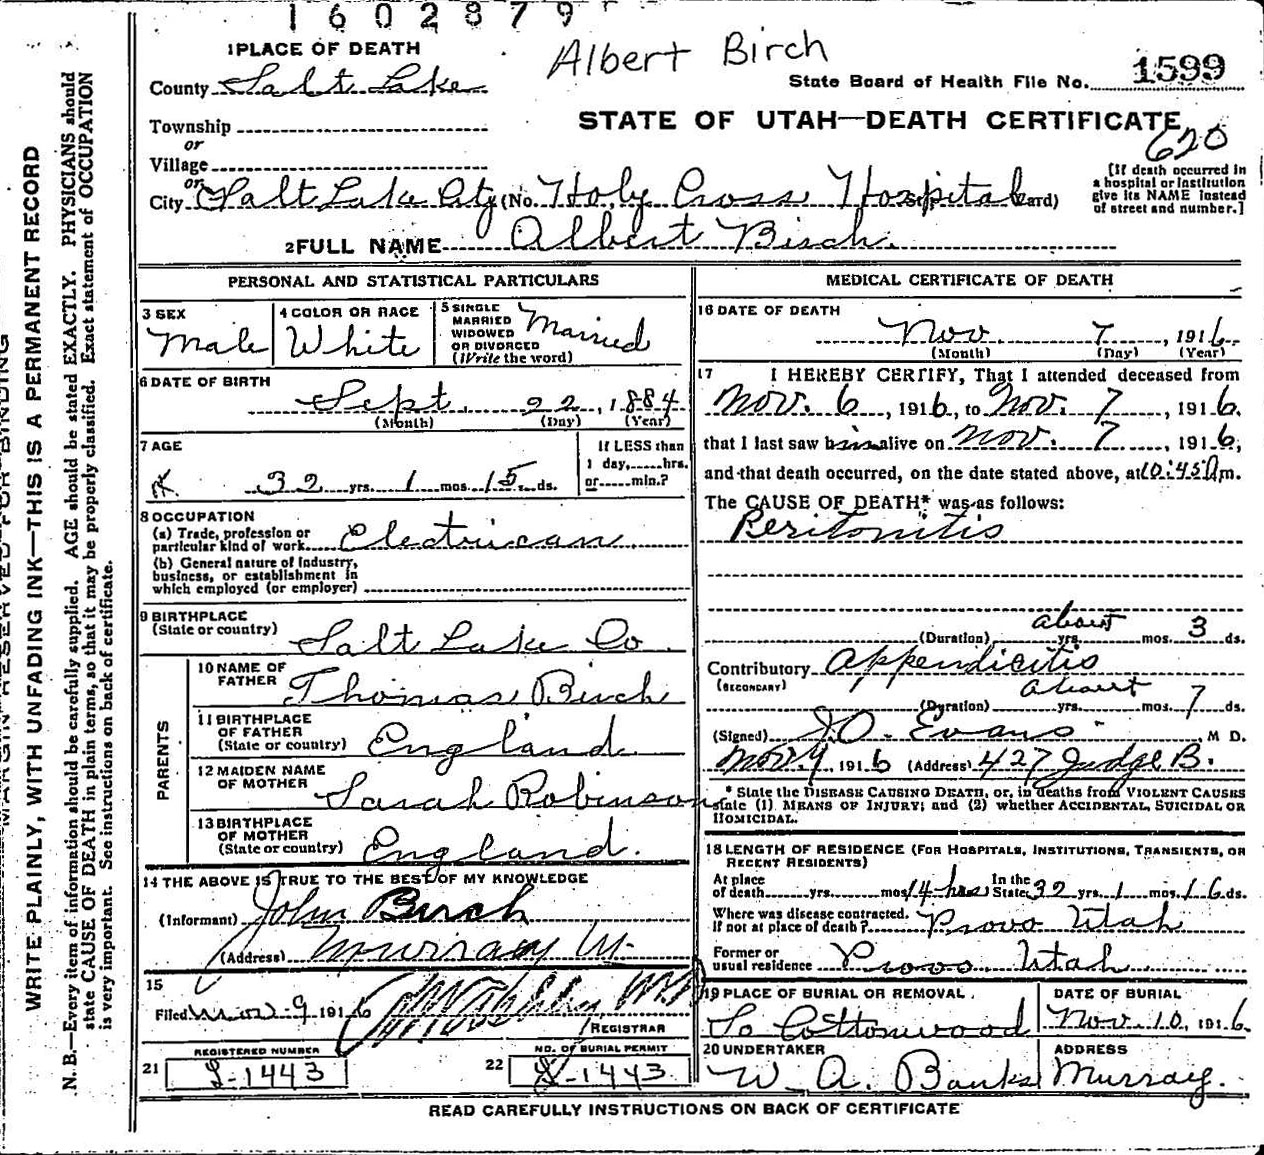 1602879
1 PLACE OF DEATH
Albert Birch
County Salt Lake
State Board of Health File No. 1599
Township
STATE OF UTAH—DEATH CERTIFICATE
or
Village
620
or
City Salt Lake City (No. Holy Cross Hospital ard)
[If death occurred in
a hospital or institution
give its NAME instead
of street and number.]
2 FULL NAME Albert Birch.
PERSONAL AND STATISTICAL PARTICULARS
3 SEX
Male
4 COLOR OR RACE
White
5 SINGLE
MARRIED
WIDOWED
OR DIVORCED
(Write the word)
Married
6 DATE OF BIRTH
Sept. 22, 1884
(Month) (Day) (Year)
7 AGE
32 yrs. 1 mos. 15 ds.
If LESS than
1 day,......hrs.
or......min.?
8 OCCUPATION
(a) Trade, profession or
particular kind of work Electrican
(b) General nature of industry,
business, or establishment in
which employed (or employer)
9 BIRTHPLACE
(State or country)
Salt Lake Co.
PARENTS
10 NAME OF
FATHER
Thomas Birch
11 BIRTHPLACE
OF FATHER
(State or country)
England
12 MAIDEN NAME
OF MOTHER
Sarah Robinson
13 BIRTHPLACE
OF MOTHER
(State or country)
England.
14 THE ABOVE IS TRUE TO THE BEST OF MY KNOWLEDGE
(Informant) John Birch
(Address) Murray U.
15
Filed Nov. 9 1916
REGISTRAR
REGISTERED NUMBER
21 1443
NO. OF BURIAL PERMIT
22 1443
MEDICAL CERTIFICATE OF DEATH
16 DATE OF DEATH
Nov. 7, 1916.
(Month) (Day) (Year)
17 I HEREBY CERTIFY, That I attended deceased from
Nov. 6, 1916, to Nov. 7, 1916.
that I last saw him alive on Nov. 7, 1916,
and that death occurred, on the date stated above, at 10:45 m.
The CAUSE OF DEATH* was as follows:
Peritonitis
about
(Duration) yrs. mos. 3 ds.
Contributory Appendicitis
(SECONDARY)
about
(Duration) yrs. mos. 7 ds.
(Signed) J.O. Evans, M D.
Nov. 1916 (Address) 427 Judge B.
* State the DISEASE CAUSING DEATH, or, in deaths from VIOLENT CAUSES
state (1) MEANS OF INJURY; and (2) whether ACCIDENTAL, SUICIDAL OR
HOMICIDAL.
18 LENGTH OF RESIDENCE (FOR HOSPITALS, INSTITUTIONS, TRANSIENTS, OR
RECENT RESIDENTS)
At place
of death yrs. mos. 14 hrs In the
State 32 yrs. 1 mos. 16 ds.
Where was disease contracted.
If not at place of death? Provo Utah
Former or
usual residence Provo. Utah.
19 PLACE OF BURIAL OR REMOVAL.
So Cottonwood
DATE OF BURIAL
Nov. 10, 1916.
20 UNDERTAKER
W. A. Banks
ADDRESS
Murray.
READ CAREFULLY INSTRUCTIONS ON BACK OF CERTIFICATE
MARGIN RESERVED FOR BINDING
WRITE PLAINLY, WITH UNFADING INK—THIS IS A PERMANENT RECORD
N. B.—Every item of information should be carefully supplied. AGE should be stated EXACTLY. PHYSICIANS should
state CAUSE OF DEATH in plain terms, so that it may be properly classified. Exact statement of OCCUPATION
is very important. See instructions on back of certificate.